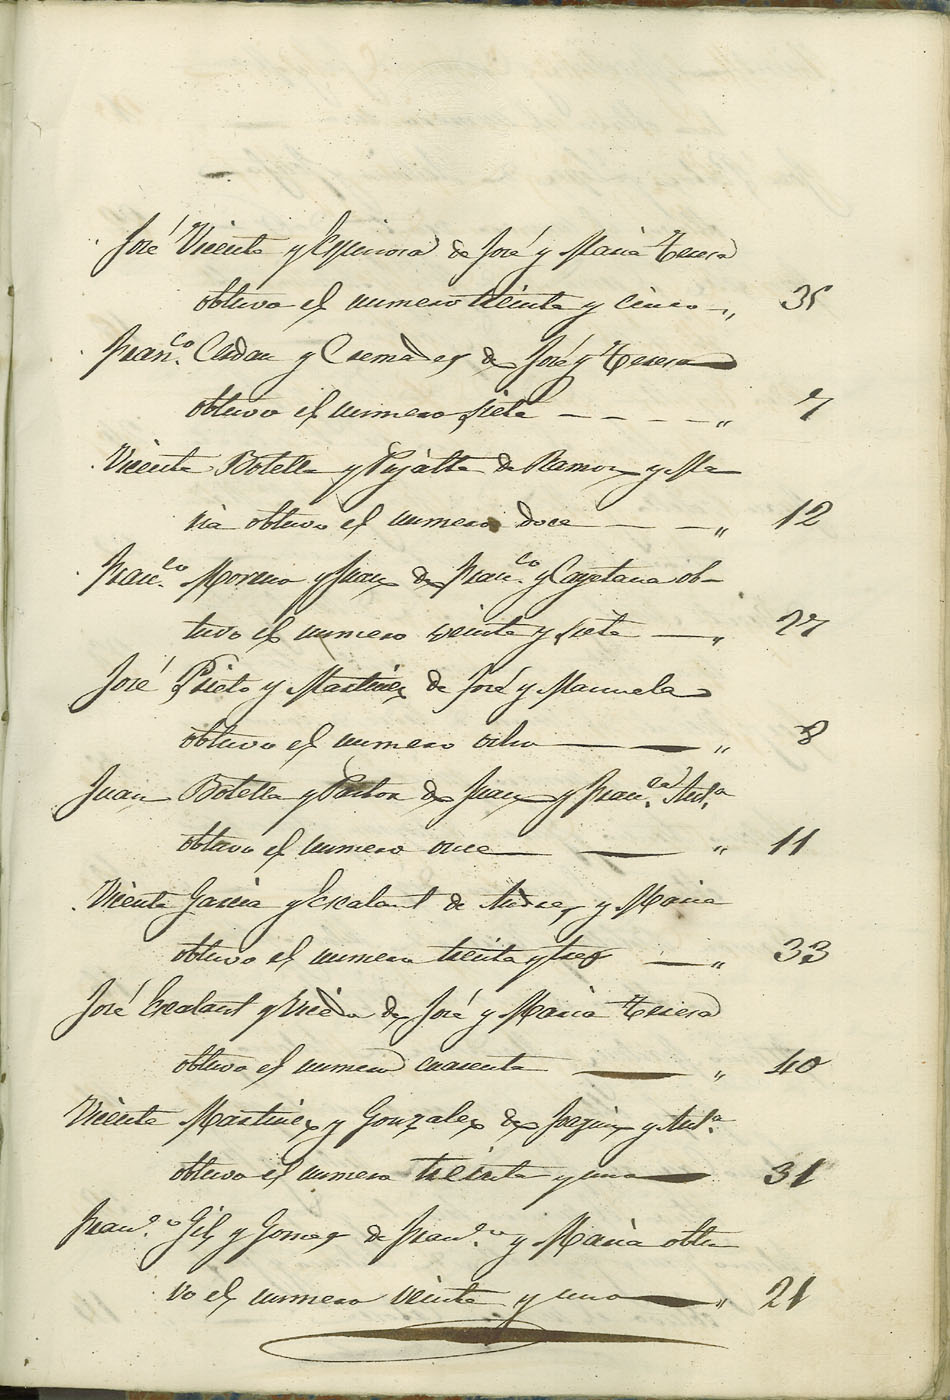 José Vicente y Espinosa de José y Maria Teresa
obtuvo el numero treinta y cinco „ 35
Fran.co Cerdan y Cremades de José y Teresa
obtuvo el numero siete - - - - „ 7
Vicente Botella y Pujalte de Ramon y Ma
ria obtuvo el numero doce — — „ 12
Fran.co Moreno y Juan de Fran.co y Cayetana ob-
tuvo el numero veinte y siete — „ 27
José Prieto y Martinez de José y Manuela
obtuvo el numero ocho — — „ 8
Juan Botella y Pastor de Juan y Fran.ca Ant.a
obtuvo el numero once — — „ 11
Vicente Garcia y Escalant de Andres y Maria
obtuvo el numero treinta y tres — „ 33
José Escalant y de José y Maria Teresa
obtuvo el numero cuarenta — „ 40
Vicente Martinez y Gonzalez de Joaquin y Ant.a
obtuvo el numero treinta y uno — 31
Fran.co Gil y Gomez de Fran.co y Maria obtu
vo el numero veinte y uno — „ 21